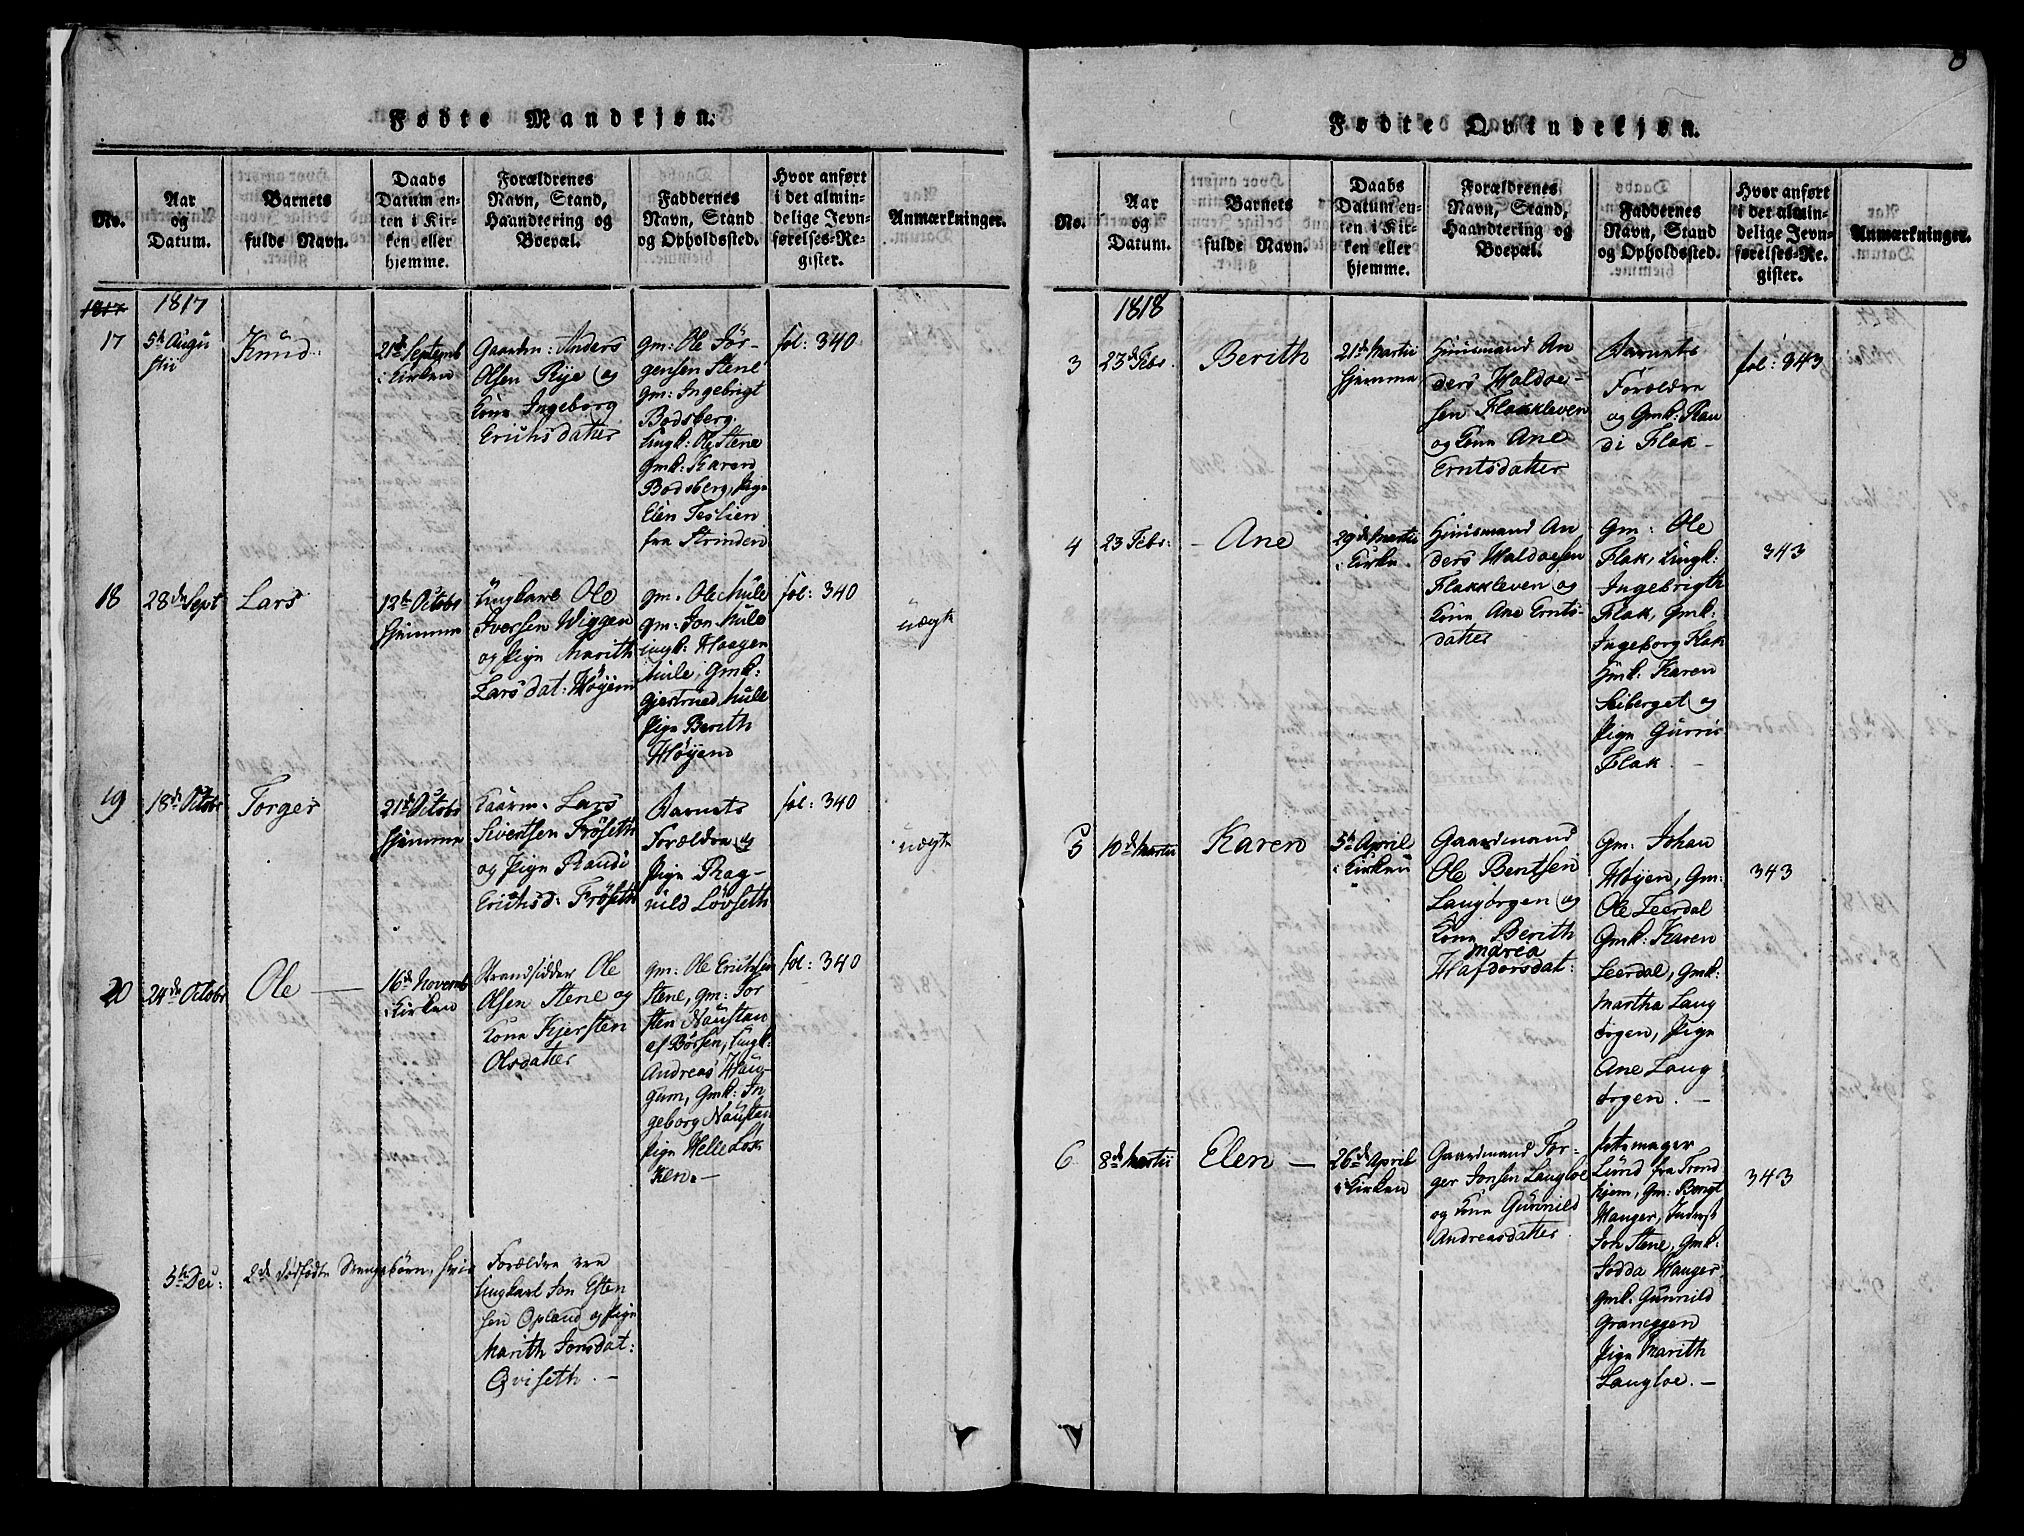 8
Fødte Mandkjøn.
No.
Aar
og
Datum.
Barnets
fulde Navn.
Daabs
Datum en-
ten i Kir-
ken eller
hjemme.
Forældrenes
Navn, Stand,
Haandtering og
Boepæl.
Faddernes
Navn, Stand
og Opholdssted.
Hvor anført
i det almin-
delige Jevn-
førelses-Re-
gister.
Anmærkninger.
1817
1817
17
5te Augu
stii
Knud.
21de Septemb
i Kirken
Gaardm: Anders
Olsen Rye og
Kone Ingeborg
Erichsdatter
gm: Ole Jör-
gensen Stene
gm: Ingebrigt
Bodsberg
Ungk: Ole Stene
gmk: Karen
Bodsberg, Pige
Elen Teslien
fra Strinden
fol: 340
18
28de Sept
Lars
12te Octobr
hjemme
Ungkarl Ole
Iversen Wiggen
og Pige Marith
Larsdat: Höyem
gm. Ole Mule
gm: Jon Mule
ungk: Haagen
Mule, Gmk:
Gjertrued Mule
Pige Berith
Höyem
fol: 340
uægte
19
18de Octobr
Torger
21de Octobr
hjemme
Lars
Sivertsen Fröseth
og Pige Randi
Erichsd: Fröseth
Barnets
Forældre og
Pige Rag-
nild Lövseth
fol: 340
uægte
20
24de Octobr
Ole —
16de Novemb
i Kirken
Strandsidder Ole
Olsen Stene og
Kone Kjersten
Olsdatter
gm: Ole Erichsen
Stene, gm: Tor
sten Naustan
af Börsen, Ungk:
Andreas Haug
gum, Gmk: In
geborg Naustan
Pige Helle Lök
ken. —
5te Dec:
2de dödfödte Drengebörn, hvis
Forældre ere
Ungkarl Jon Esten
sen Opland og Pige
Marith Jonsdat:
Qviseth. —
Fødte Qvindekjøn.
No.
Aar
og
Datum.
Barnets
fulde Navn.
Daabs
Datum en-
ten i Kir-
ken eller
hjemme.
Forældrenes
Navn, Stand,
Haandtering og
Boepæl.
Faddernes
Navn, Stand
og Opholdssted.
Hvor anført
i det almin-
delige Jevn-
førelses-Re-
gister.
Anmærkninger.
1818
3
23de Febr.
Berith
21de Martii
hjemme
Huusmand An
ders Haldoe-
sen Flakkleven
og Kone Ane
Erntsdatter
Barnets
Forældre
og Gmk: Ran
di Flak —
fol: 343
4
23 Febr: —
Ane
29de Martii
i Kirken
Huusmand An
ders Haldoesen
Flakkleven og
Kone Ane Ernts
datter
Gm: Ole
Flak, Ungk:
Ingebrigth
Flak, Gmk:
Ingeborg Flak
Gmk: Karen
Seiberget og
Pige Gurru
Flak
343
5
10de Martii
Karen
5te April
i Kirken
Gaardmand
Ole Bentsen
Langörgen og
Kone Berith
Marea
Hafdorsdat:
Gm: Johan
Höyen, Gm:
Ole Leerdal
Gmk: Karen
Leerdal, Gmk:
Martha Lang
örgen, Pige
Ane Lang
örgen. —
343
6
8de Martii
Elen —
26de April
i Kirken
Gaardmand Tor-
ger Jonsen Langloe
og Kone Gunnild
Andreasdatter
Pottemager
Lund fra Trond
hjem, Gm: Bengt
Hanger, Inderst
Jon Stene, Gmk:
Jodda Hanger
Gmk: Gunnild
Graneggen
Pige Marith
Langloe. —
343